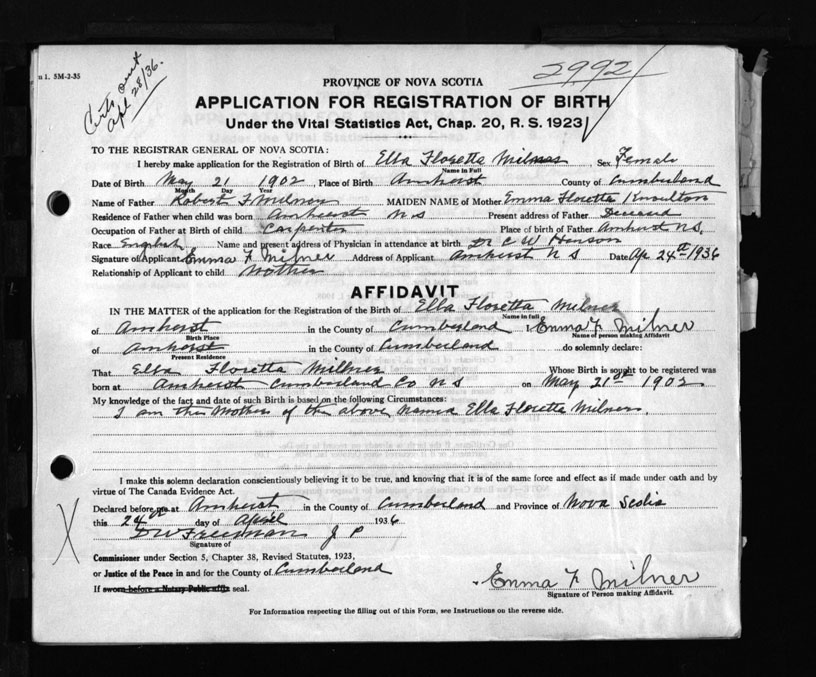 n 1. 5M-2-35
Certs out
Apl 28/36.
2992
PROVINCE OF NOVA SCOTIA
APPLICATION FOR REGISTRATION OF BIRTH
Under the Vital Statistics Act, Chap. 20, R. S. 1923
TO THE REGISTRAR GENERAL OF NOVA SCOTIA:
I hereby make application for the Registration of Birth of Ella Floretta Milner Sex Female
Name in Full
Date of Birth May 21 1902 Place of Birth Amherst County of Cumberland
Month Day Year
Name of Father Robert F Milner MAIDEN NAME of Mother Emma Floretta Knoulton
Residence of Father when child was born Amherst N S Present address of Father Deceased
Occupation of Father at Birth of child Carpenter Place of birth of Father Amherst N.S.
Race English Name and present address of Physician in attendance at birth Dr C W Henson
Signature of Applicant Emma F Milner Address of Applicant Amherst N S Date Ap 24th 1936
Relationship of Applicant to child Mother
AFFIDAVIT
IN THE MATTER of the application for the Registration of the Birth of Ella Floretta Milner
Name in full
of Amherst in the County of Cumberland I, Emma F Milner
Birth Place Name of person making Affidavit
of Amherst in the County of Cumberland do solemnly declare:
Present Residence
That Ella Floretta Milner Whose Birth is sought to be registered was
born at Amherst Cumberland Co N S on May 21st 1902
My knowledge of the fact and date of such Birth is based on the following Circumstances:
I am the Mother of the above named Ella Floretta Milner.
I make this solemn declaration conscientiously believing it to be true, and knowing that it is of the same force and effect as if made under oath and by
virtue of The Canada Evidence Act.
Declared before me at Amherst in the County of Cumberland and Province of Nova Scotia
this 24th day of April 1936
D W Freeman J P
Signature of
Commissioner under Section 5, Chapter 38, Revised Statutes, 1923,
or Justice of the Peace in and for the County of Cumberland
If sworn before a Notary Public affix seal.
Emma F Milner
Signature of Person making Affidavit.
For Information respecting the filling out of this Form, see Instructions on the reverse side.